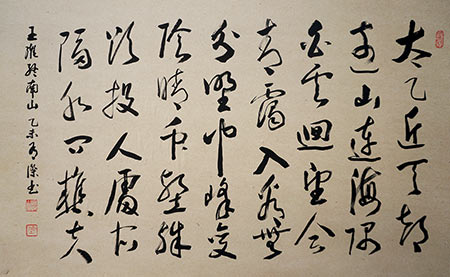 太乙近天都
山連海隅
白雲迴望合
青靄入看無
分野中峰變
陰晴眾壑殊
欲投人處宿
隔水問樵夫
王維終南山 乙未 書